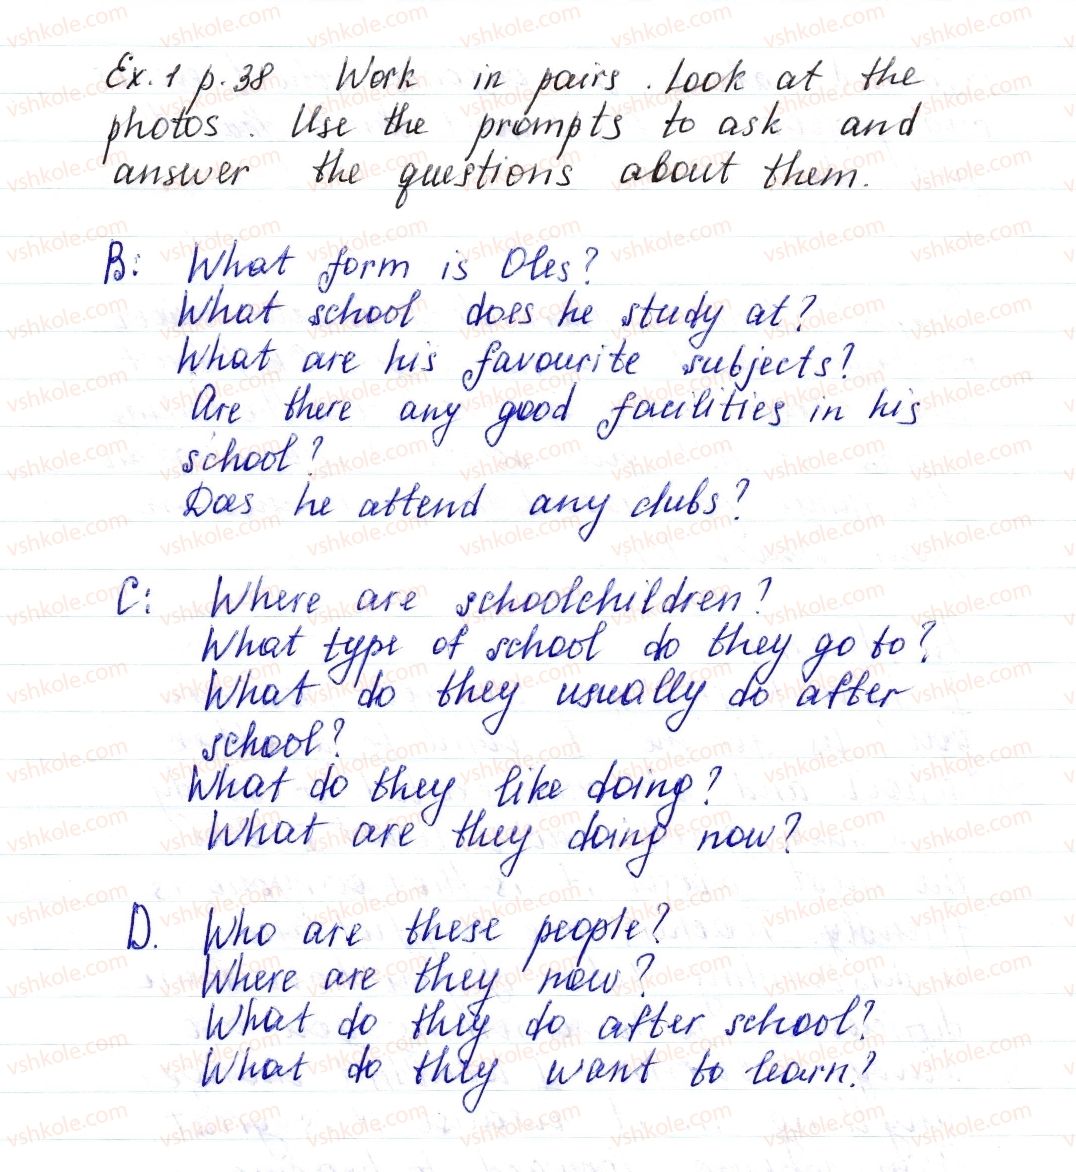 Ex. 1 p. 38 Work in pairs. Look at the
photos. Use the prompts to ask and
answer the questions about them.
B: What form is Oles?
What school does he study at?
What are his favourite subjects?
Are there any good facilities in his
school?
Does he attend any clubs?
C: Where are schoolchildren?
What type of school do they go to?
What do they usually do after
school?
What do they like doing?
What are they doing now?
D. Who are these people?
Where are they now?
What do they do after school?
What do they want to learn?